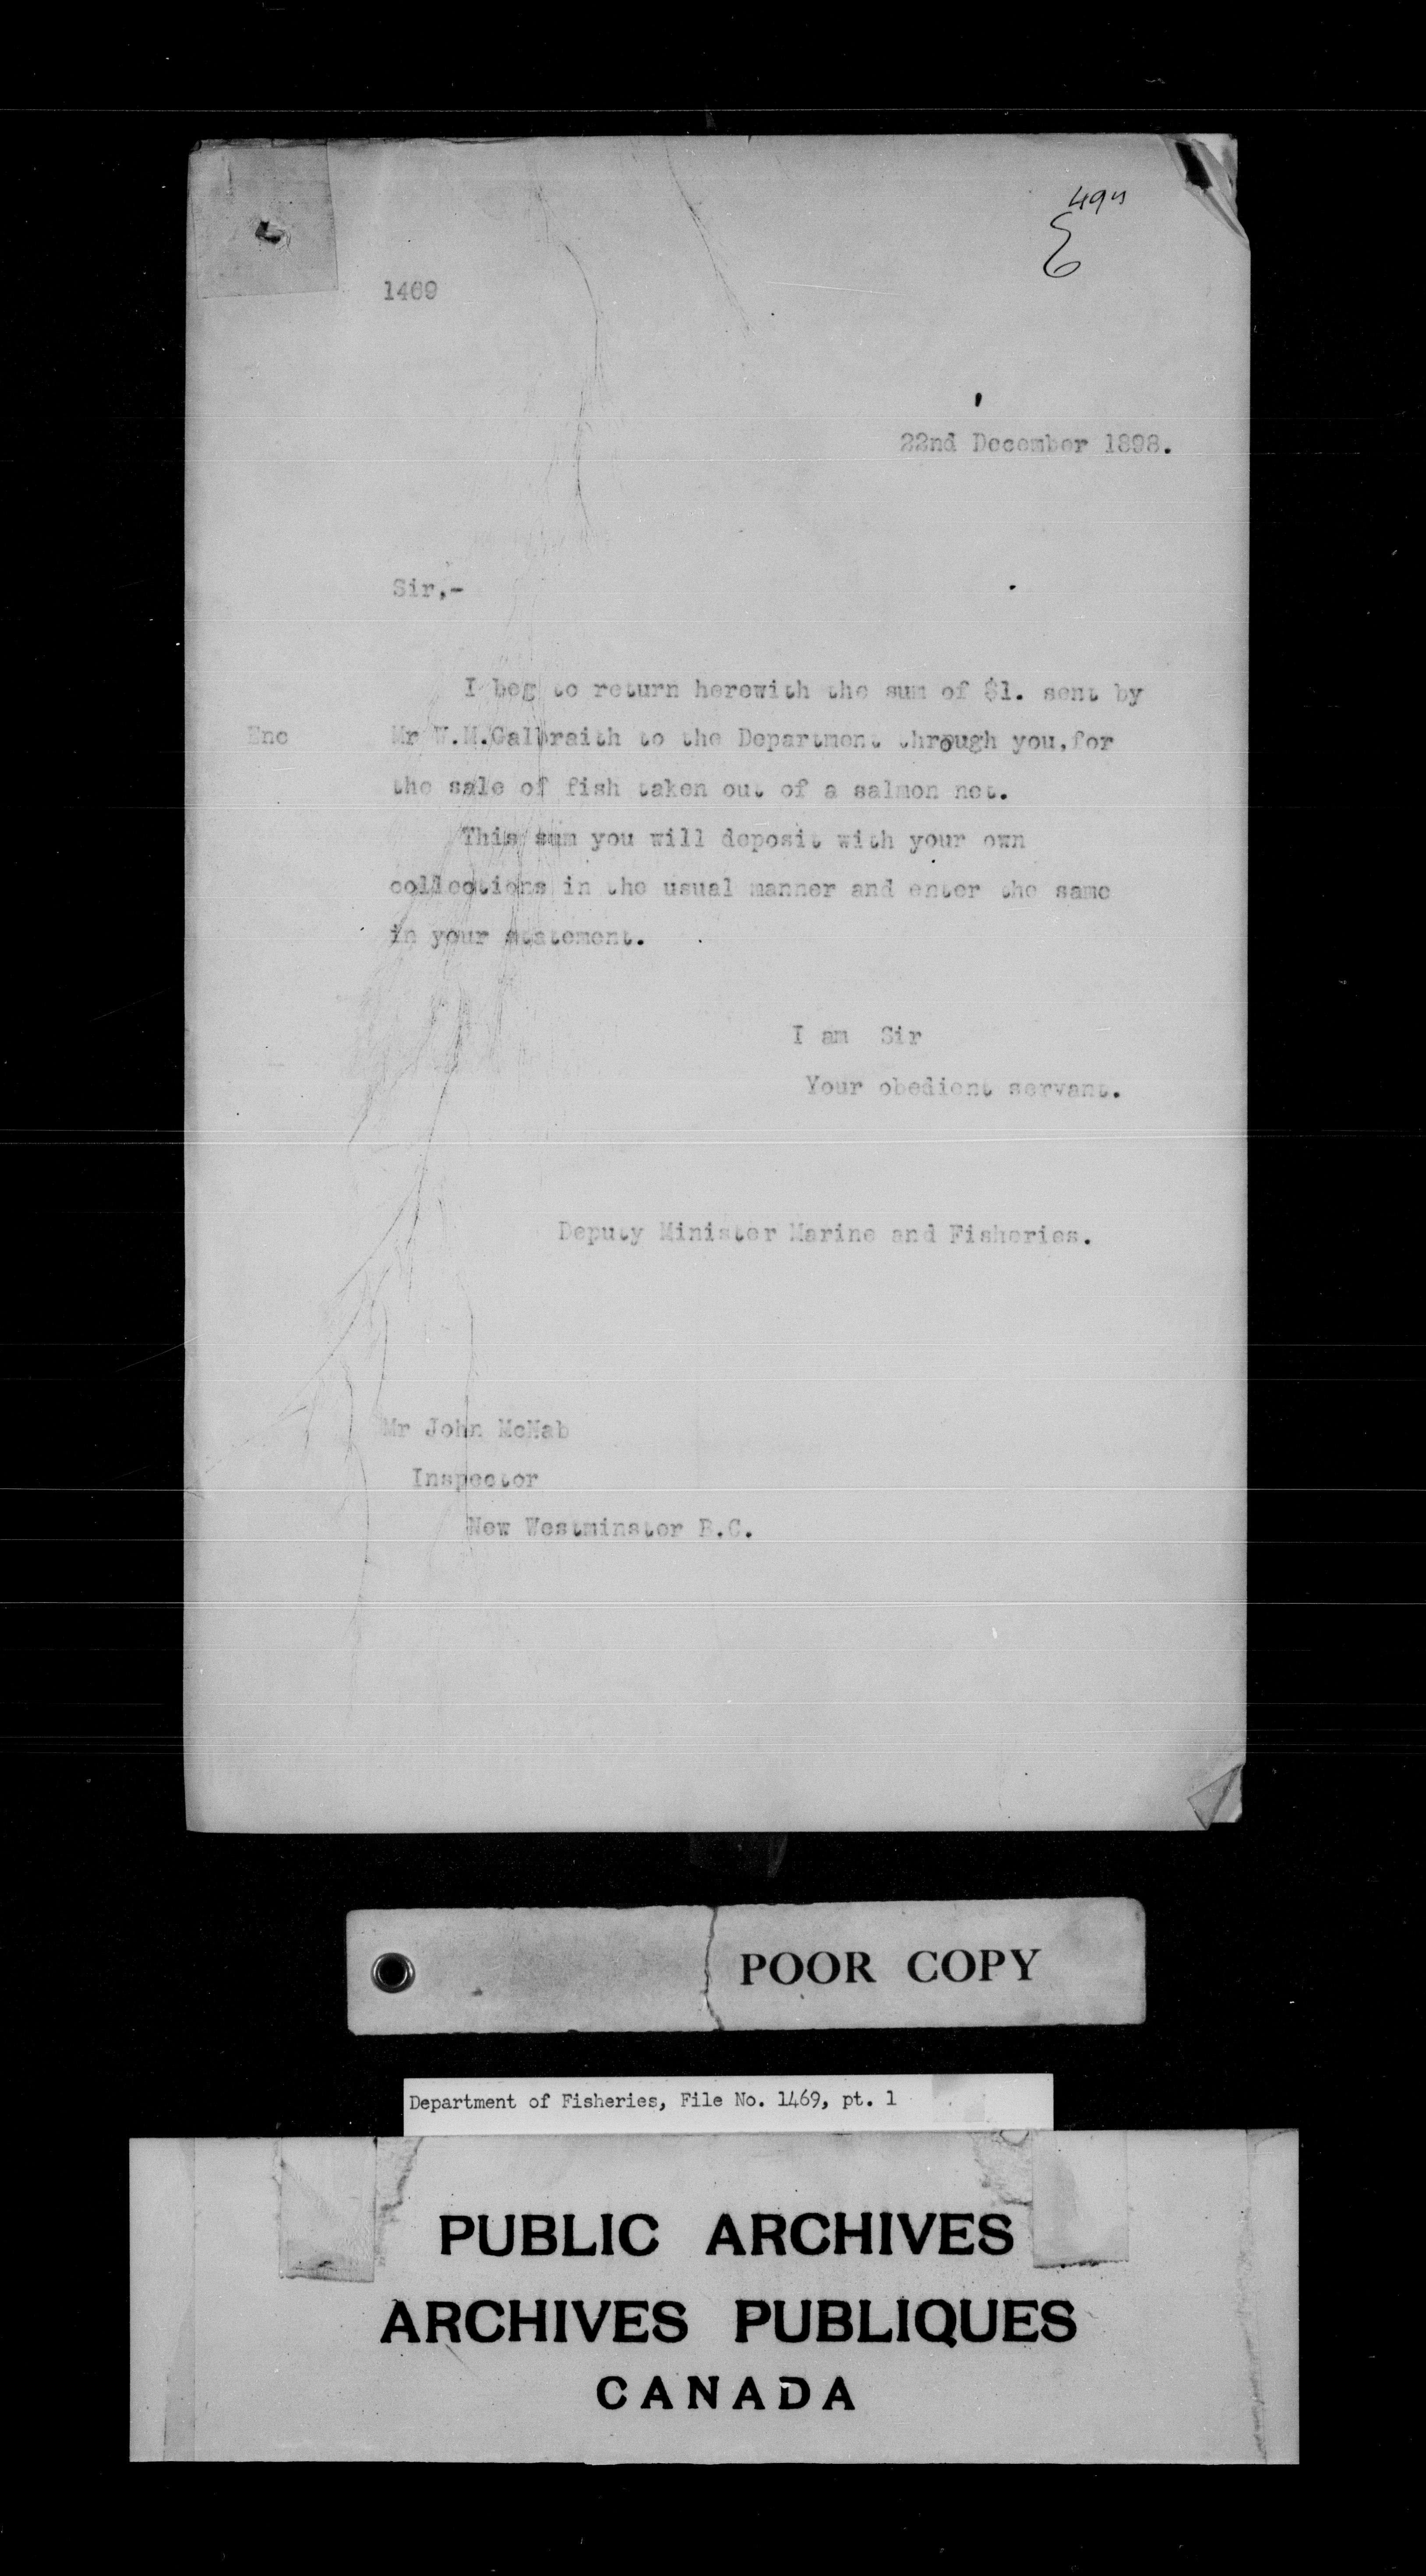 1469
22nd December 1898.
Sir,-
I beg to return herewith the sum of $1. sent by
Enc Mr W.M.Galbraith to the Department through you,for
the sale of fish taken out of a salmon net.
This sum you will deposit with your own
collections in the usual manner and enter the same
in your statement.
I am Sir
Your obedient servant.
Deputy Minister Marine and Fisheries.
Mr John McNab
Inspector
New Westminster B.C.
POOR COPY
Department of Fisheries, File No. 1469, pt. 1
PUBLIC ARCHIVES
ARCHIVES PUBLIQUES
CANADA